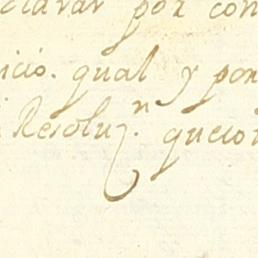 clarar por con
icio. qual y por
Resoluz.n que